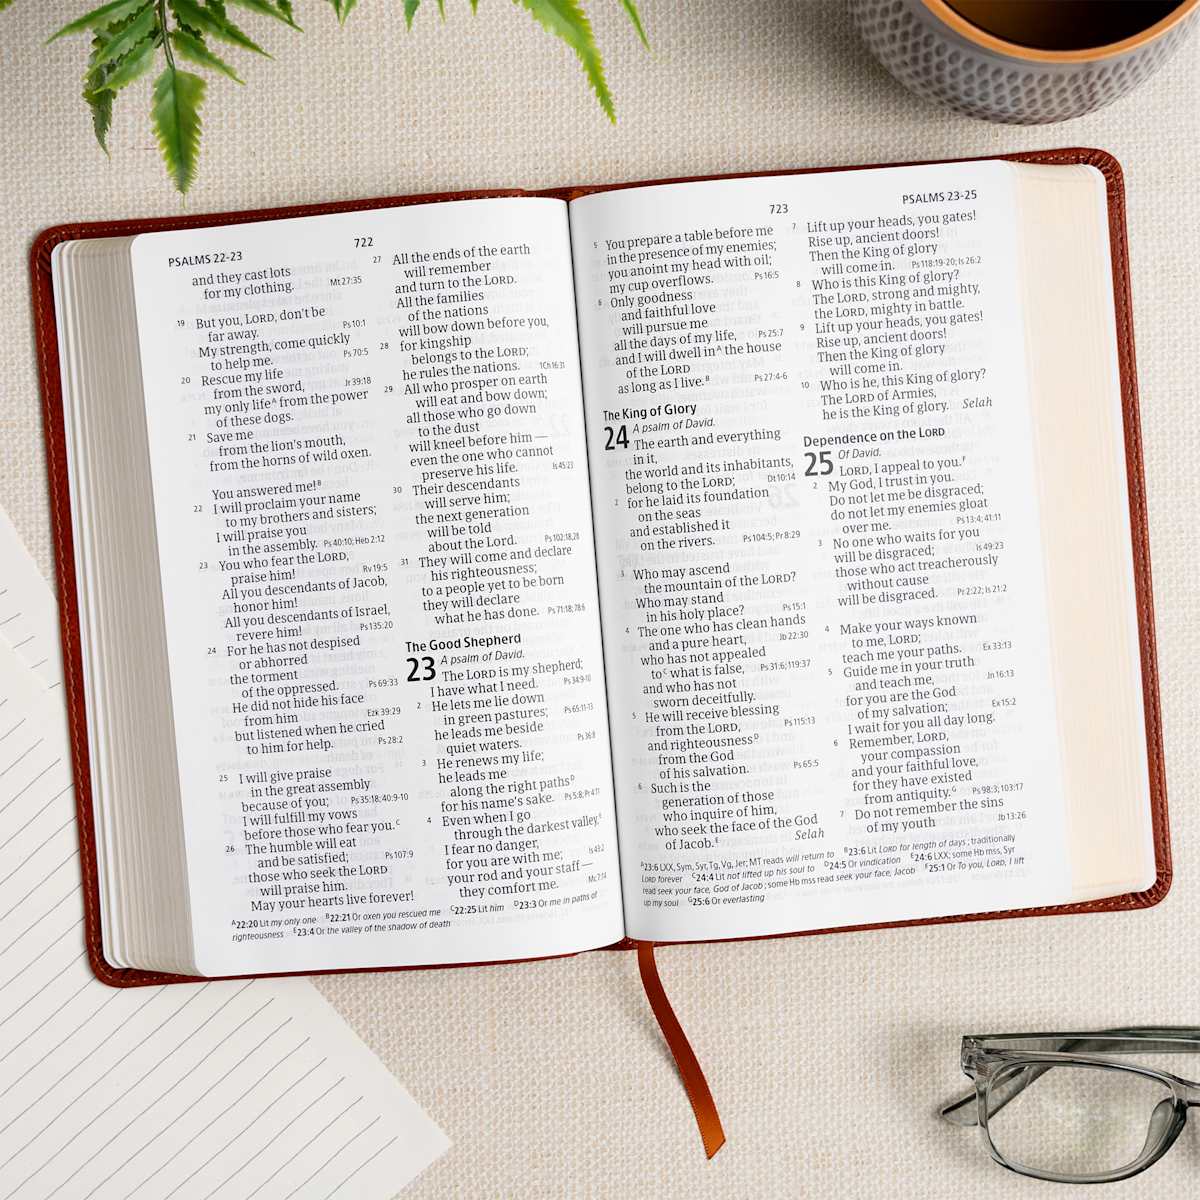 PSALMS 22-23
722
and they cast lots
for my clothing. Mt 27:35
19 But you, LORD, don't be
far away. Ps 10:1
My strength, come quickly
to help me. Ps 70:5
20 Rescue my life
from the sword, Jr 39:18
my only life A from the power
of these dogs.
21 Save me
from the lion's mouth,
from the horns of wild oxen.
You answered me! B
22 I will proclaim your name
to my brothers and sisters;
I will praise you
in the assembly. Ps 40:10; Heb 2:12
23 You who fear the LORD,
praise him! Rv 19:5
All you descendants of Jacob,
honor him!
All you descendants of Israel,
revere him! Ps 135:20
24 For he has not despised
or abhorred
the torment
of the oppressed. Ps 69:33
He did not hide his face
from him Ezk 39:29
but listened when he cried
to him for help. Ps 28:2
25 I will give praise
in the great assembly
because of you; Ps 35:18; 40:9-10
I will fulfill my vows
before those who fear you. C
26 The humble will eat
and be satisfied; Ps 107:9
those who seek the LORD
will praise him.
May your hearts live forever!
27 All the ends of the earth
will remember
and turn to the LORD.
All the families
of the nations
will bow down before you,
28 for kingship
belongs to the LORD;
he rules the nations. 1Ch 16:31
29 All who prosper on earth
will eat and bow down;
all those who go down
to the dust
will kneel before him —
even the one who cannot
preserve his life. Is 45:23
30 Their descendants
will serve him;
the next generation
will be told
about the Lord. Ps 102:18,28
31 They will come and declare
his righteousness;
to a people yet to be born
they will declare
what he has done. Ps 71:18; 78:6
The Good Shepherd
23 A psalm of David.
The LORD is my shepherd;
I have what I need. Ps 34:9-10
2 He lets me lie down
in green pastures; Ps 65:11-13
he leads me beside
quiet waters. Ps 36:8
3 He renews my life;
he leads me
along the right paths D
for his name's sake. Ps 5:8; Pr 4:11
4 Even when I go
through the darkest valley, E
I fear no danger,
for you are with me; Is 43:2
your rod and your staff —
they comfort me. Mc 7:14
A 22:20 Lit my only one B 22:21 Or oxen you rescued me C 22:25 Lit him D 23:3 Or me in paths of
righteousness E 23:4 Or the valley of the shadow of death
723
PSALMS 23-25
5 You prepare a table before me
in the presence of my enemies;
you anoint my head with oil;
my cup overflows. Ps 16:5
6 Only goodness
and faithful love
will pursue me
all the days of my life, Ps 25:7
and I will dwell in A the house
of the LORD
as long as I live. B Ps 27:4-6
The King of Glory
24 A psalm of David.
The earth and everything
in it,
the world and its inhabitants,
belong to the LORD; Dt 10:14
2 for he laid its foundation
on the seas
and established it
on the rivers. Ps 104:5; Pr 8:29
3 Who may ascend
the mountain of the LORD?
Who may stand
in his holy place? Ps 15:1
4 The one who has clean hands
and a pure heart, Jb 22:30
who has not appealed
to C what is false, Ps 31:6; 119:37
and who has not
sworn deceitfully.
5 He will receive blessing
from the LORD, Ps 115:13
and righteousness D
from the God
of his salvation. Ps 65:5
6 Such is the
generation of those
who inquire of him,
who seek the face of the God
of Jacob. E Selah
7 Lift up your heads, you gates!
Rise up, ancient doors!
Then the King of glory
will come in. Ps 118:19-20; Is 26:2
8 Who is this King of glory?
The LORD, strong and mighty,
the LORD, mighty in battle.
9 Lift up your heads, you gates!
Rise up, ancient doors!
Then the King of glory
will come in.
10 Who is he, this King of glory?
The LORD of Armies,
he is the King of glory. Selah
Dependence on the LORD
25 Of David.
LORD, I appeal to you. F
2 My God, I trust in you.
Do not let me be disgraced;
do not let my enemies gloat
over me. Ps 13:4; 41:11
3 No one who waits for you
will be disgraced; Is 49:23
those who act treacherously
without cause
will be disgraced. Pr 2:22; Is 21:2
4 Make your ways known
to me, LORD;
teach me your paths. Ex 33:13
5 Guide me in your truth
and teach me, Jn 16:13
for you are the God
of my salvation; Ex 15:2
I wait for you all day long.
6 Remember, LORD,
your compassion
and your faithful love,
for they have existed
from antiquity. G Ps 98:3; 103:17
7 Do not remember the sins
of my youth Jb 13:26
A 23:6 LXX, Sym, Syr, Tg, Vg, Jer; MT reads will return to B 23:6 Lit LORD for length of days ; traditionally
LORD forever C 24:4 Lit not lifted up his soul to D 24:5 Or vindication E 24:6 LXX; some Hb mss, Syr
read seek your face, God of Jacob ; some Hb mss read seek your face, Jacob F 25:1 Or To you, LORD, I lift
up my soul G 25:6 Or everlasting